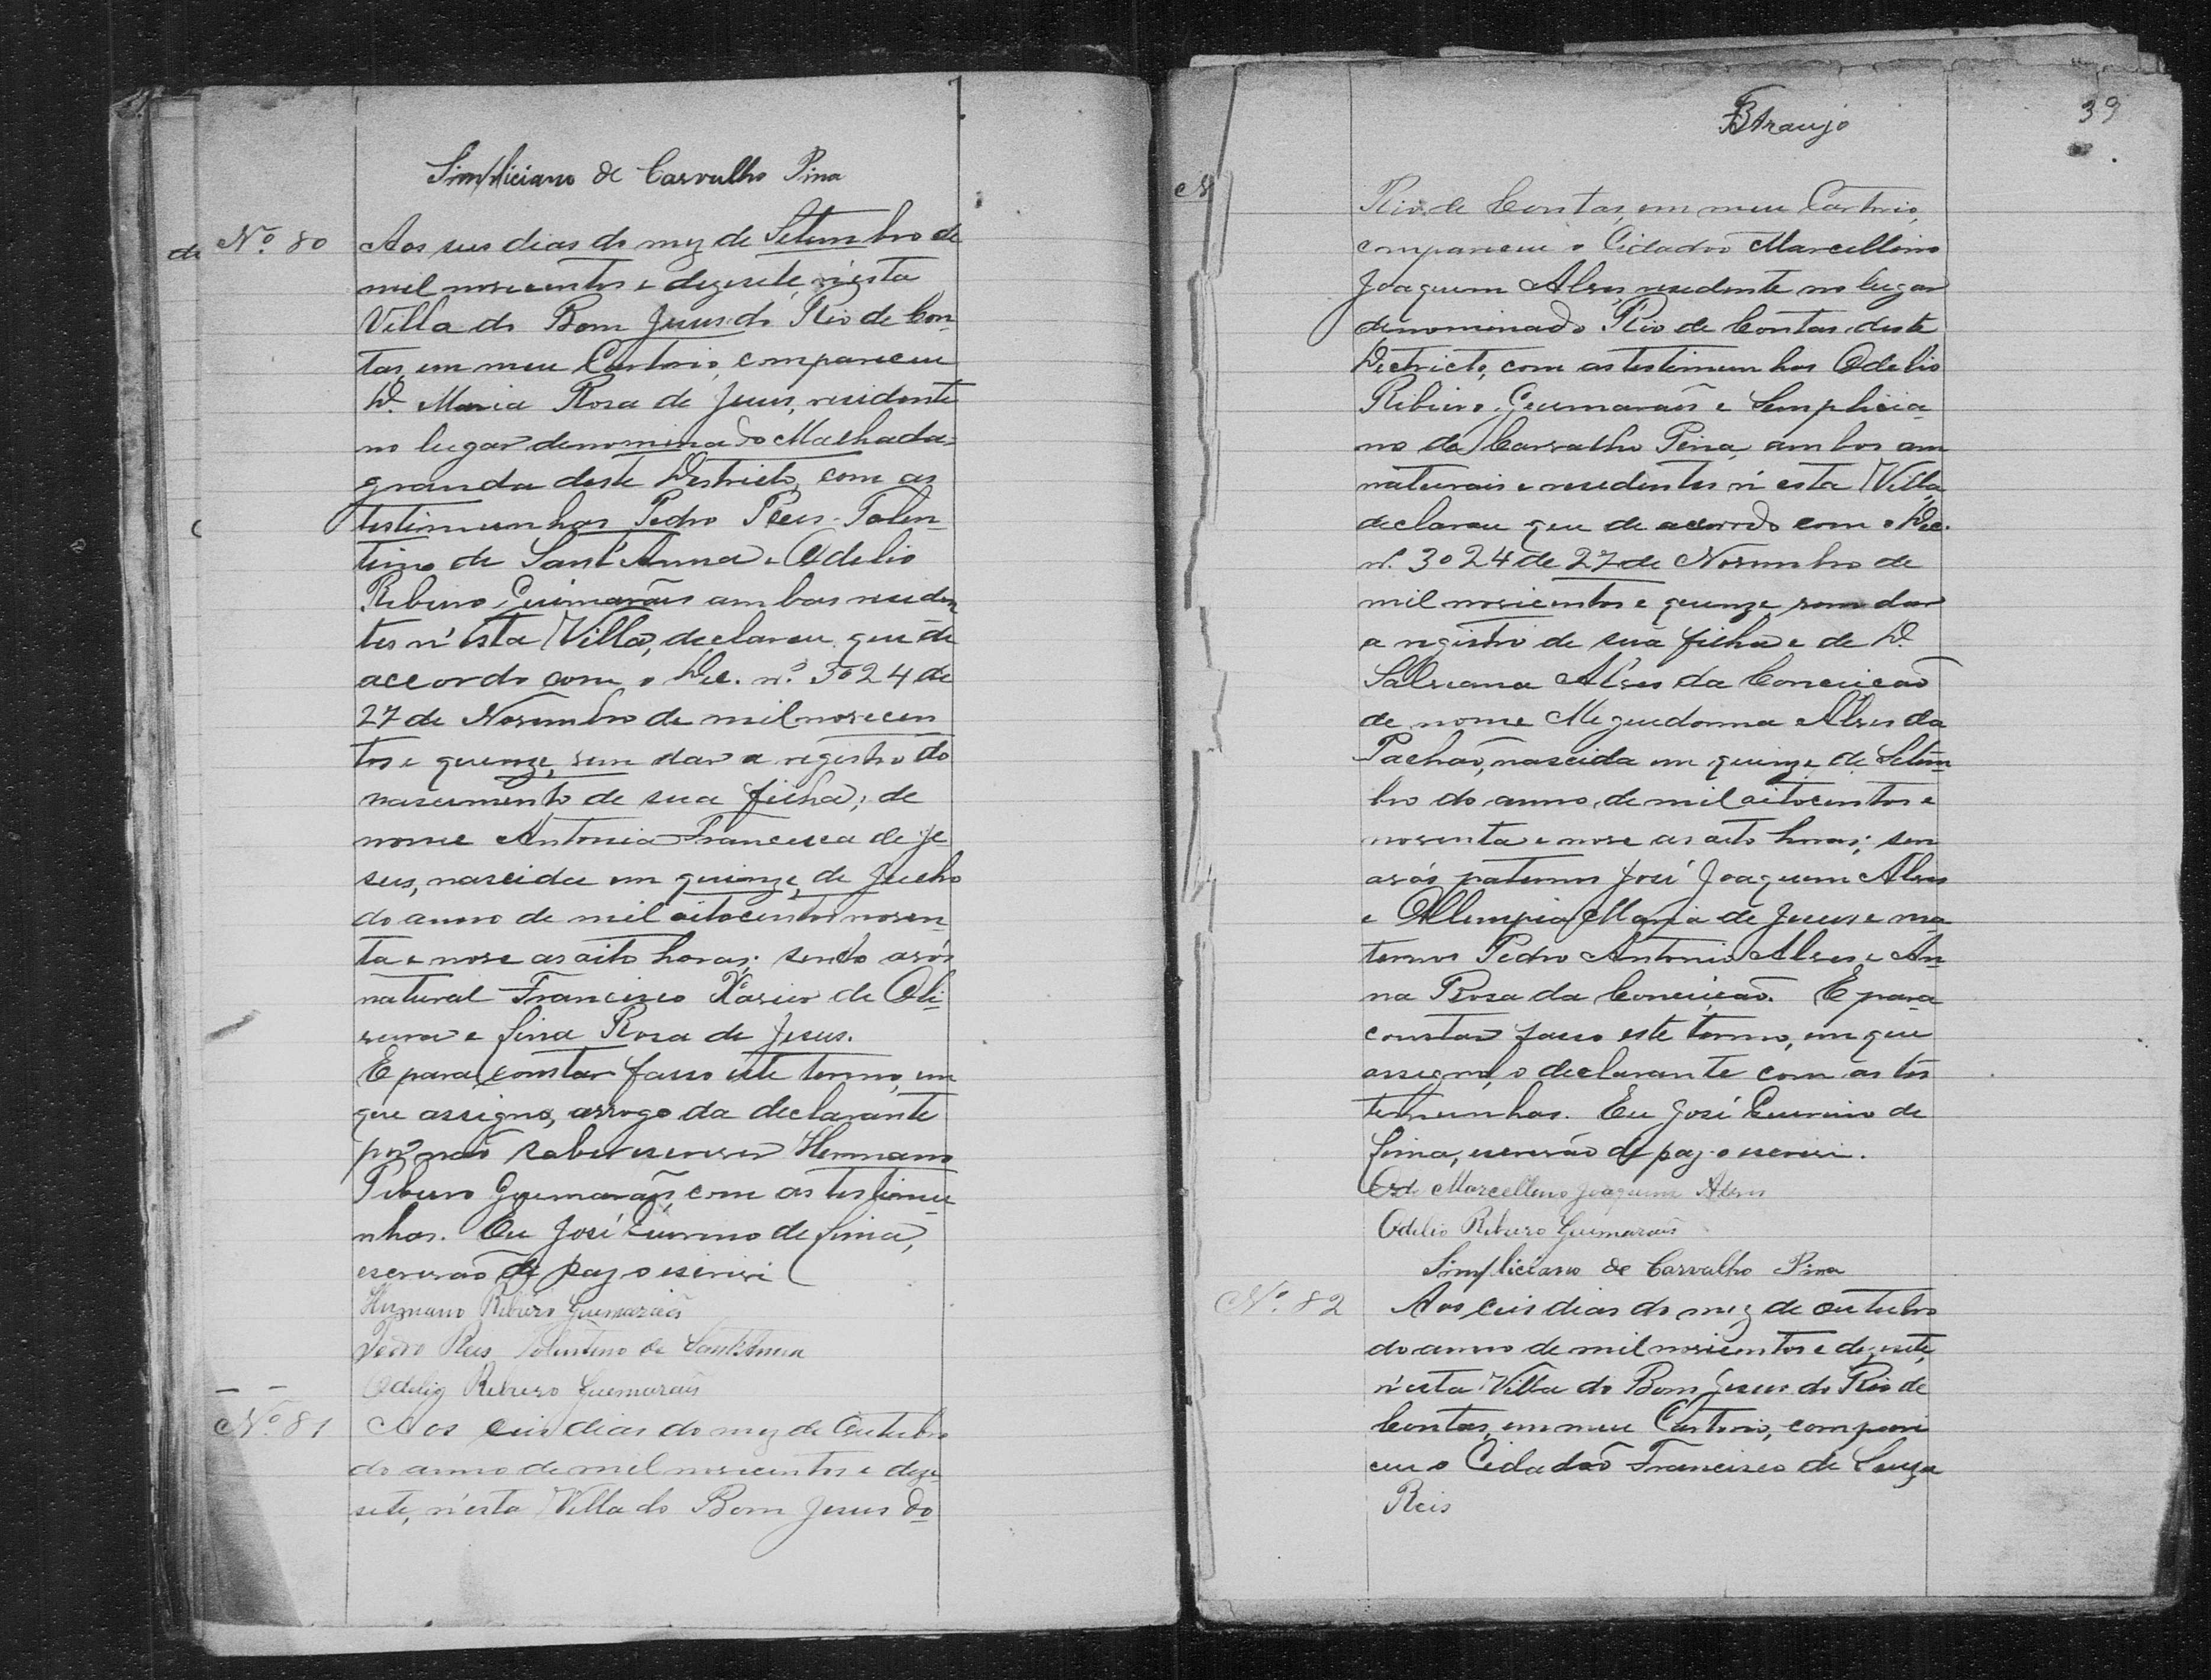 Simpliciano de Carvalho Pina
de
Nº 80 Aos seis dias do mez de Setembro de
mil novecentos e dezesete, n'esta
Villa do Bom Jesus do Rio de Con-
tas, em meu Cartorio, compareceu
D. Maria Rosa de Jesus, residente
no lugar denominado Malhada-
grande deste Districto, com as
testimunhas Pedro Reis Tolen-
tino de Sant'Anna e Odelio
Ribeiro Guimarães ambas residen
tes n'esta Villa, declarou que de
accordo com o Dec. nº 3024 de
27 de Novembro de mil novecen
tos e quinze, vem dar a registro do
nascimento de sua filha, de
nome Antonia Francisca de Je
sus, nascida em quinze de Julho
do anno de mil oitocentos noven-
ta e nove as oito horas; sendo avós
natural Francisco Xavier de Oli-
veira e Lina Rosa de Jesus.
E para constar fasso este termo, em
que assigna, arrogo da declarante
por não saber escrever Hermano
Ribeiro Guimarães, com as testimu
nhas. Eu José Quirino de Lima,
escrivão de paz o escrivi
Hermano Ribeiro Guimarães
Pedro Reis Tolentino de Sant'Anna
Odelio Ribeiro Guimarães
Nº 81 Aos seis dias do mez de Outubro
do anno de mil novecentos e deze
sete, n'esta Villa do Bom Jesus do
39
BAraujo
Rio de Contas, em meu Cartorio,
compareceu o Cidadão Marcellino
Joaquim Alves, residente no lugar
denominado Rio de Contas deste
Destricto, com as testimunhas Odelio
Ribeiro Guimarães e Semplicia-
no de Carvalho Pina, ambos
naturais e residentes n'esta Villa,
declarou que de acorrdo com o Dec.
nº 3024 de 27 de Novembro de
mil novicentos e quinze, vem dar
a registro de sua filha e de D.
Salviana Alves da Conceicão
de nome Alves da
Pachão, nascida em quinze de Setem
bro do anno de mil oitocentos e
noventa e nove as oito horas; sen
avós paternos José Joaquim Alves
e Ollimpia Maria de Jesus e ma
ternos Pedro Antonio Alves e An
na Rosa da Conceicão. E para
constar fasso este termo, em que
assigna, o declarante com as tes
temunhas. Eu José Quirino de
Lima, escrivão de paz o escrivi.
Marcellino Joaquim Alves
Odelio Ribeiro Guimarães
Simpliciano de Carvalho Pina
Nº 82 Aos seis dias do mez de outubro
do anno de mil novicentos e dezesete,
n'esta Villa do Bom Jesus do Rio de
Contas, em meu Cartorio, compare
ceu o Cidadão Francisco de Souza
Reis